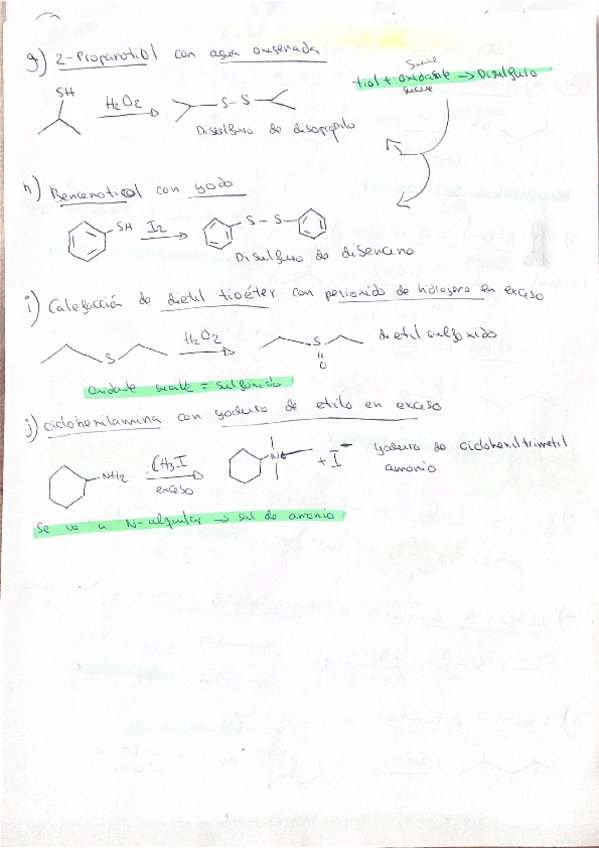 g) 2-Propanotiol con agua oxigenada
suave
tiol + oxidante → Disulfuro
suave
SH
H2O2
S-S
Disulfuro de diisopropilo
h) Bencenotiol con yodo
SH
I2
S - S
Disulfuro de difenceno
i) Calefacción de dietil tioéter con peróxido de hidógeno en exceso
S
H2O2
S
O
dietil sulfoxido
Oxidante suave = sulfoxido
j) ciclohexilamina con yoduro de etilo en exceso
NH2
CH3I
exceso
N+
+ I-
yoduro de ciclohexil trimetil
amonio
Se va a N-alquilar → sal de amonio